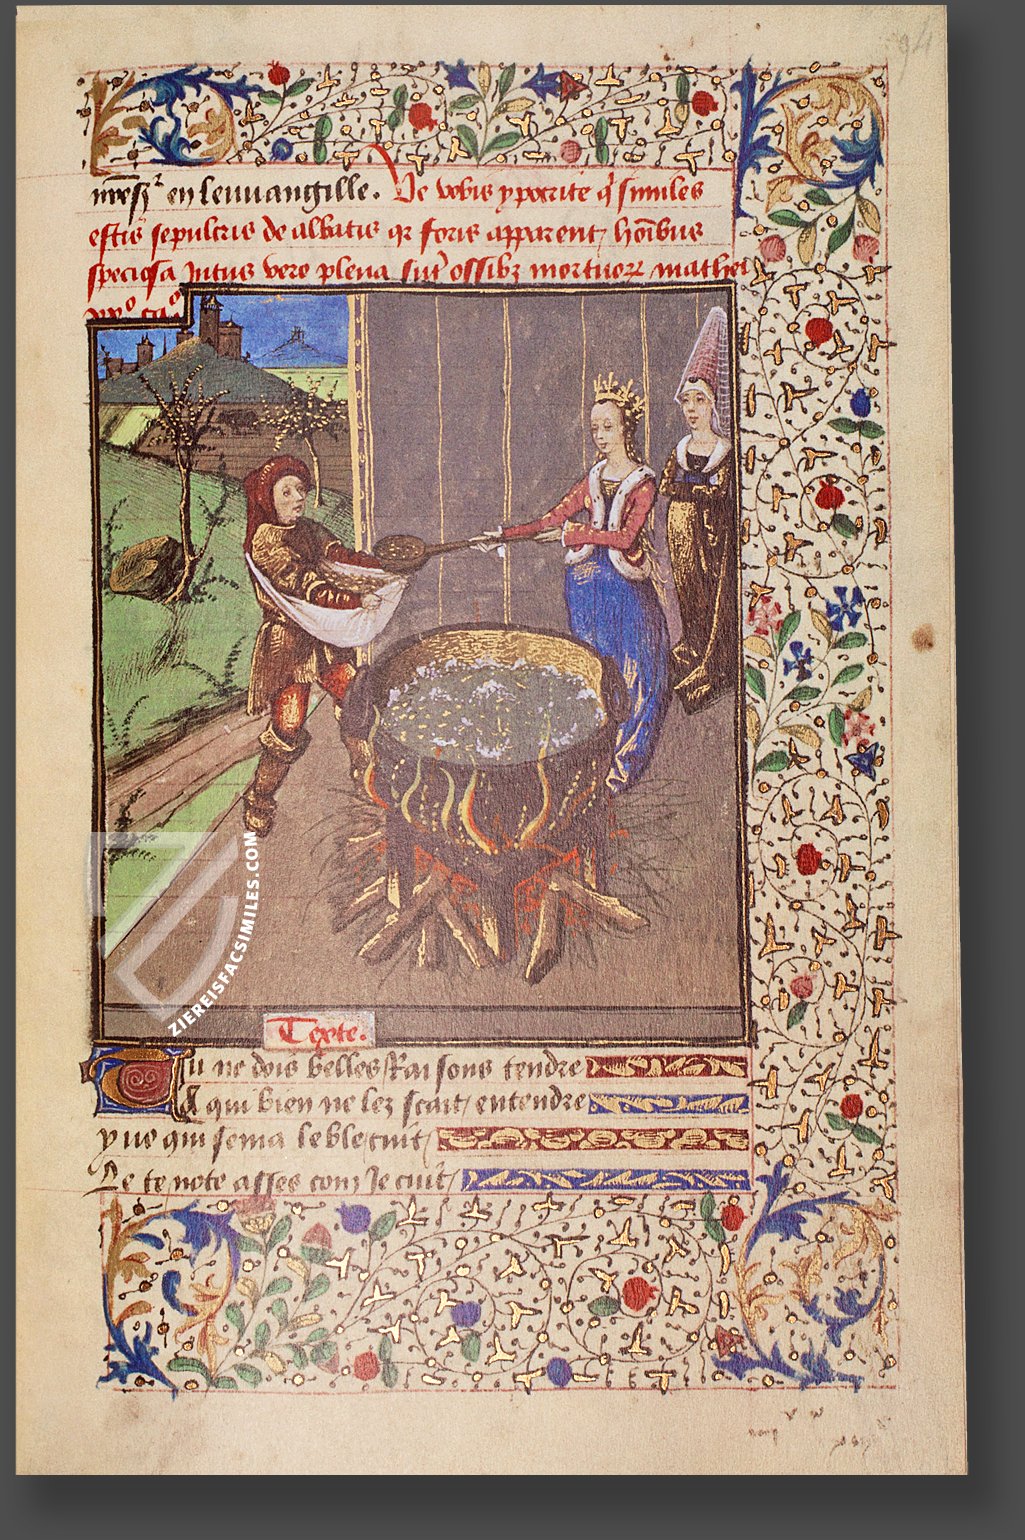 94
en leuuangille. Ve vobis ypocrite q̄ similes
estis sepulcris de albatis q̄ foris apparent hōibus
speciosa Intus vero plena sūt ossibꝫ mortuoꝝ mathei
Texte.
Tu ne dois belles Raisons tendre
A qui bien ne lez scait entendre
yno qui sema le ble cuit
Le te note asses com Ie cuit
ZIEREISFACSIMILES.COM